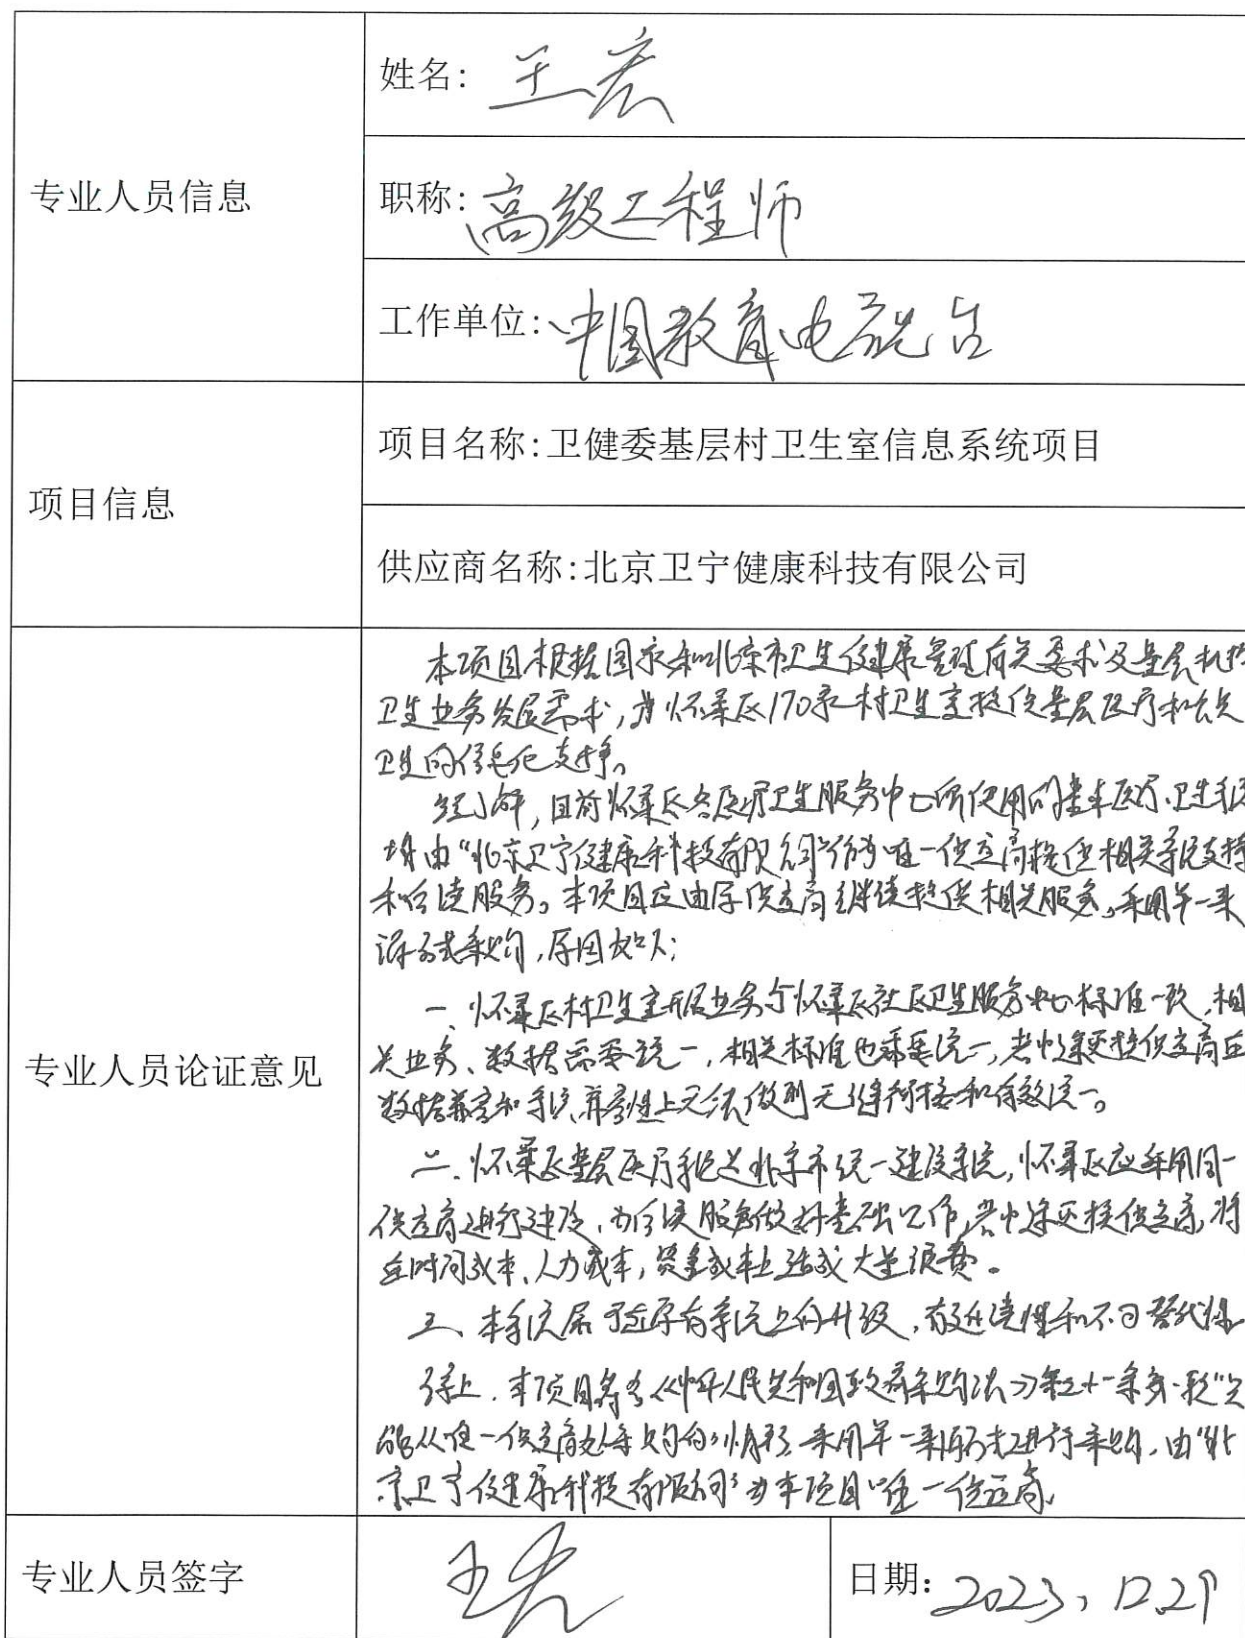 专业人员信息
姓名: 王宏
职称: 高级工程师
工作单位: 中国教育电视台
项目信息
项目名称:卫健委基层村卫生室信息系统项目
供应商名称:北京卫宁健康科技有限公司
专业人员论证意见
本项目根据国家和北京市卫生健康管理有关要求及基层机构
卫生业务发展需求,为怀柔区170家村卫生室提供基层医疗和公共
卫生的信息化支撑。
经了解,目前怀柔区各医疗卫生服务中心所使用的基本医疗卫生系统
均由“北京卫宁健康科技有限公司”作为唯一供应商提供相关系统支持
和后续服务。本项目应由原供应商继续提供相关服务,采用单一来
源方式采购,原因如下:
一、怀柔区村卫生室开展业务与怀柔区社区卫生服务中心标准一致,相
关业务、数据需要统一,相关标准也需要统一,若中途更换供应商在
数据兼容和系统兼容性上无法做到无缝衔接和有效统一。
二、怀柔区基层医疗系统是北京市统一建设系统,怀柔区应采用同一
供应商进行建设,为后续服务做好基础工作,若中途更换供应商,将
在时间成本、人力成本,资金成本上造成大量浪费。
三、本系统属于在原有系统上的升级,有延续性和不可替代性。
综上,本项目符合《中华人民共和国政府采购法》第三十一条第一款“只
能从唯一供应商处采购的”情形,采用单一来源方式进行采购,由“北
京卫宁健康科技有限公司”为本项目唯一供应商。
专业人员签字
王宏
日期: 2023.12.29